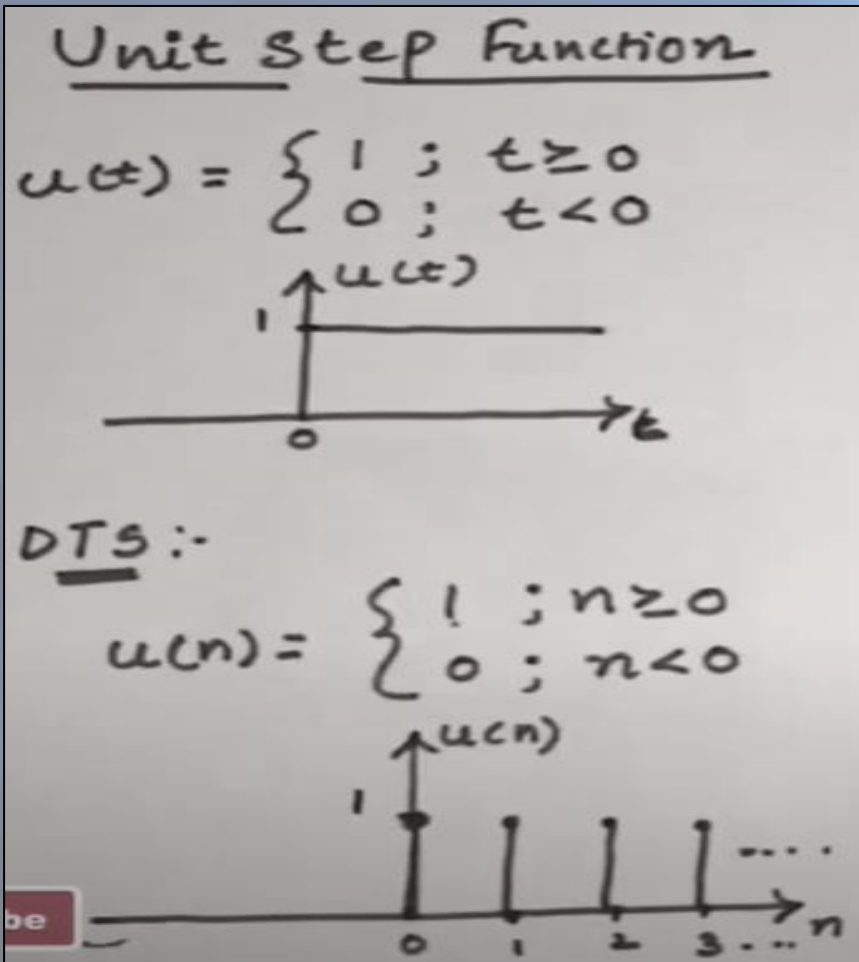 Unit Step Function
u(t) = { 1 ; t ≥ 0
0 ; t < 0
u(t)
1
t
0
DTS :-
u(n) = { 1 ; n ≥ 0
0 ; n < 0
u(n)
1
....
be
n
0 1 2 3 ....